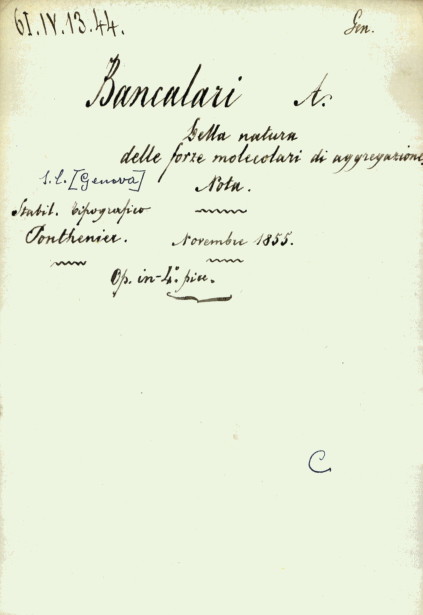 61.IV.13.44.
Gen.
Bancalari A.
Della natura
delle forze molecolari di aggregazione.
s.l. [Genova]
Nota.
Stabil. Tipografico
Ponthenier. Novembre 1855.
Op. in-4.° picc.
C